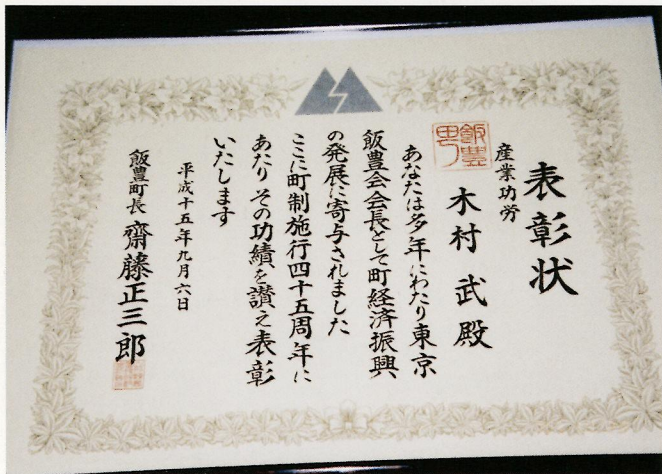 表彰状
産業功労
木村武殿
あなたは多年にわたり東京
飯豊会会長として町経済振興
の発展に寄与されました
ここに町制施行四十五周年に
あたりその功績を讃え表彰
いたします
平成十五年九月六日
飯豊町長 齋藤正三郎